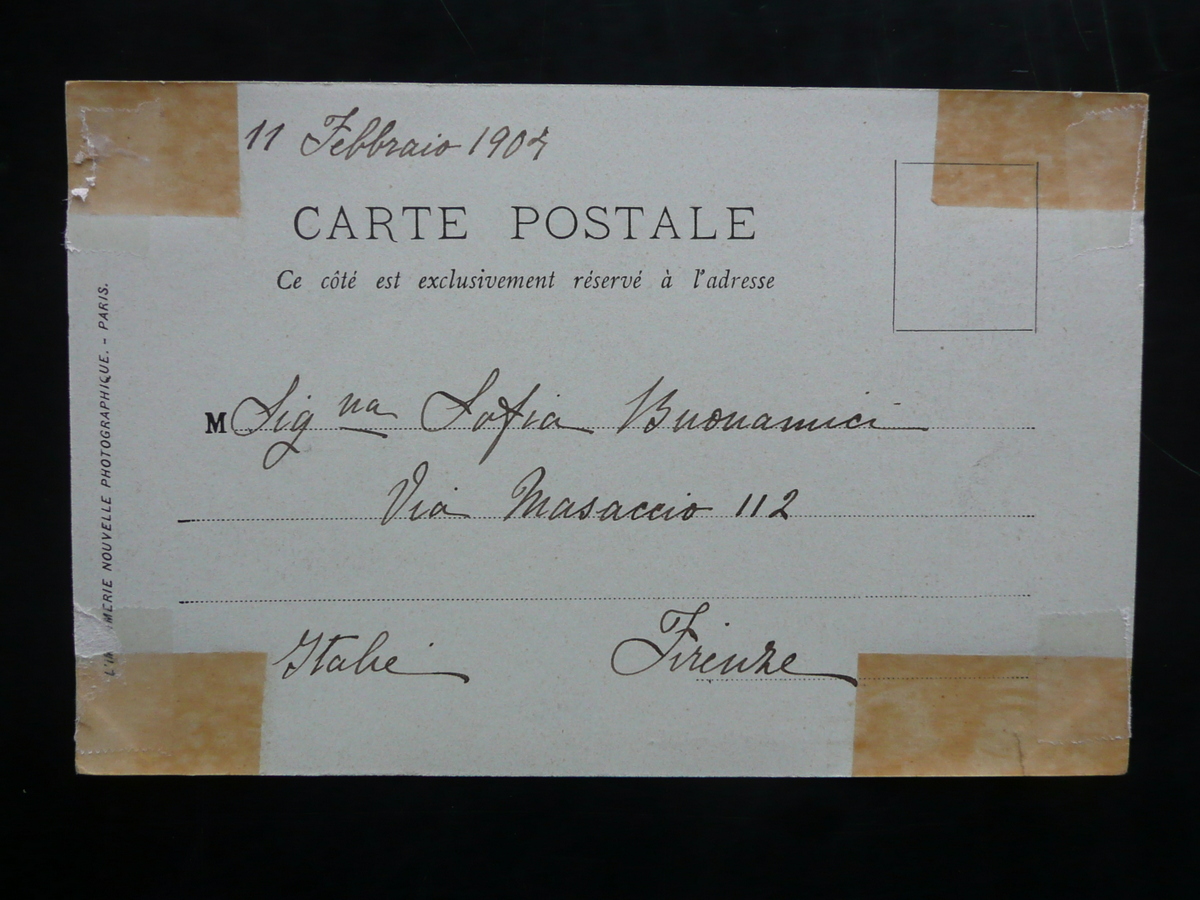 11 Febbraio 1904
CARTE POSTALE
Ce côté est exclusivement réservé à l'adresse
M Sig na Sofia Buonamici
Via Masaccio 112
Italie Firenze
NOUVELLE PHOTOGRAPHIQUE. - PARIS.